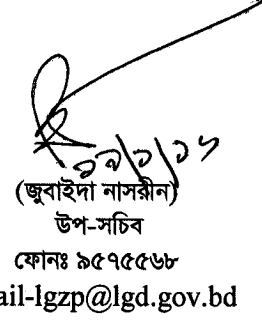 (জুবাইদা নাসরীন)
উপ-সচিব
ফোনঃ ৯৫৭৫৫৬৮
ail-lgzp@lgd.gov.bd